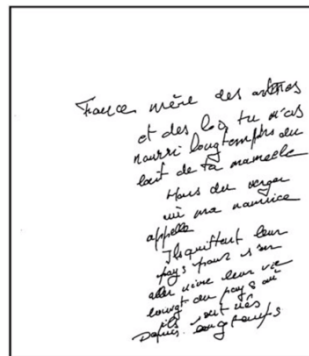 France mère des artères
et des loq tu m'as
nourri longtemps du
lait de ta mamelle
Hans du verger
où ma nourrice
appelle
Ils quittent leur
pays pour s'en
aller vivre leur vie
au pays où
ils sont nés
Depuis longtemps